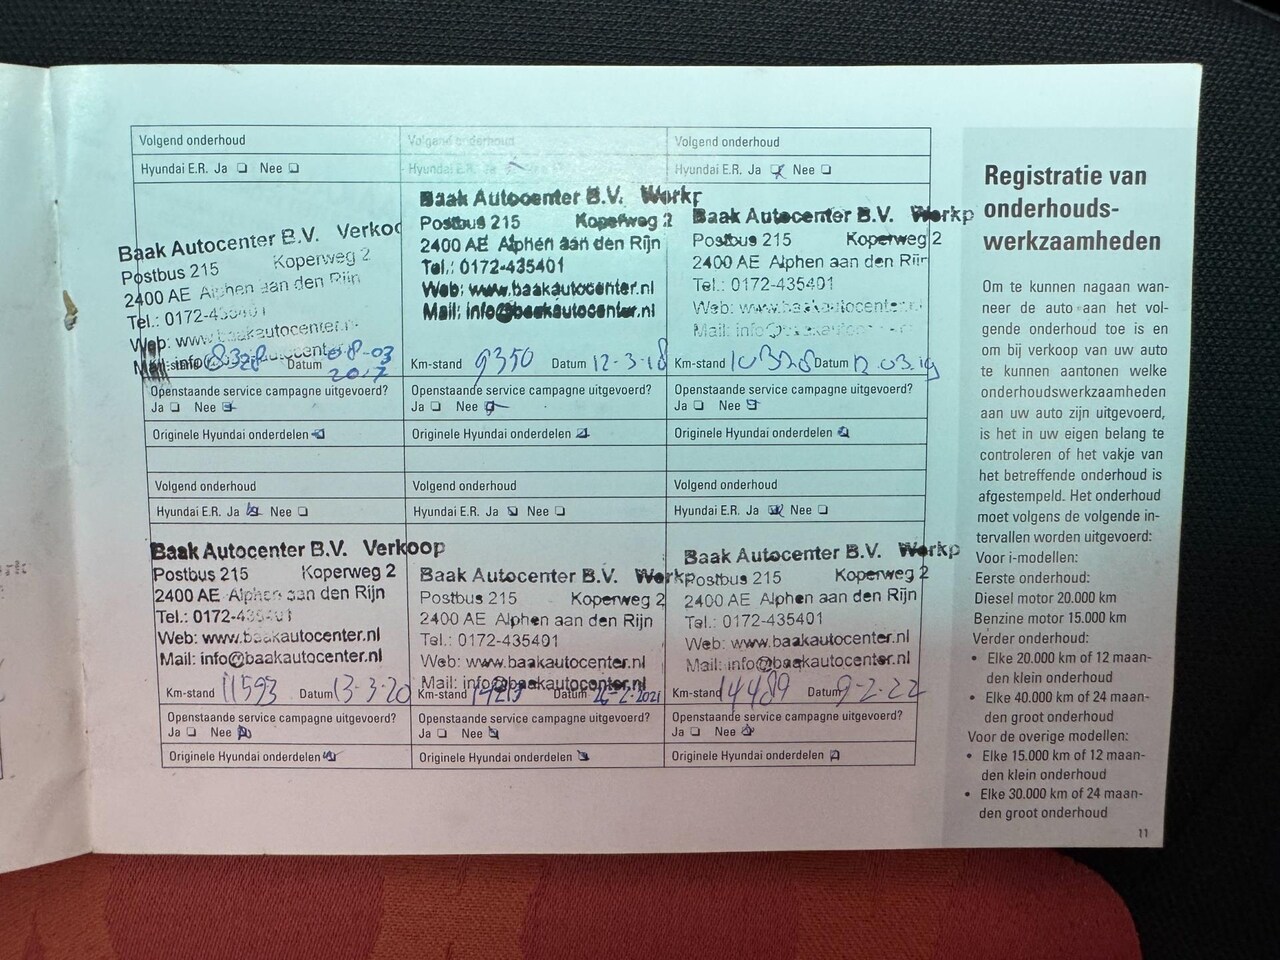 Volgend onderhoud
Hyundai E.R. Ja Nee
Baak Autocenter B.V. Verkoo
Postbus 215 Koperweg 2
2400 AE Alphen aan den Rijn
Tel.: 0172-435401
Web: www.baakautocenter.nl
Mail: info@baakautocenter.nl
Km-stand 8328 Datum 08-03
2017
Openstaande service campagne uitgevoerd?
Ja Nee
Originele Hyundai onderdelen
Volgend onderhoud
Hyundai E.R. Ja
Baak Autocenter B.V. Workp
Postbus 215 Koperweg 2
2400 AE Alphen aan den Rijn
Tel.: 0172-435401
Web: www.baakautocenter.nl
Mail: info@baakautocenter.nl
Km-stand 9350 Datum 12-3-18
Openstaande service campagne uitgevoerd?
Ja Nee
Originele Hyundai onderdelen
Volgend onderhoud
Hyundai E.R. Ja Nee
Baak Autocenter B.V. Werkp
Postbus 215 Koperweg 2
2400 AE Alphen aan den Rijn
Tel.: 0172-435401
Web: www.baakautocenter.nl
Mail: info@baakautocenter.nl
Km-stand 10328 Datum 12.03.19
Openstaande service campagne uitgevoerd?
Ja Nee
Originele Hyundai onderdelen
Volgend onderhoud
Hyundai E.R. Ja Nee
Baak Autocenter B.V. Verkoop
Postbus 215 Koperweg 2
2400 AE Alphen aan den Rijn
Tel.: 0172-435401
Web: www.baakautocenter.nl
Mail: info@baakautocenter.nl
Km-stand 11593 Datum 13-3-20
Openstaande service campagne uitgevoerd?
Ja Nee
Originele Hyundai onderdelen
Volgend onderhoud
Hyundai E.R. Ja Nee
Baak Autocenter B.V. Werkp
Postbus 215 Koperweg 2
2400 AE Alphen aan den Rijn
Tel.: 0172-435401
Web: www.baakautocenter.nl
Mail: info@baakautocenter.nl
Km-stand Datum
Openstaande service campagne uitgevoerd?
Ja Nee
Originele Hyundai onderdelen
Volgend onderhoud
Hyundai E.R. Ja Nee
Baak Autocenter B.V. Werkp
Postbus 215 Koperweg 2
2400 AE Alphen aan den Rijn
Tel.: 0172-435401
Web: www.baakautocenter.nl
Mail: info@baakautocenter.nl
Km-stand 14489 Datum 9-2-22
Openstaande service campagne uitgevoerd?
Ja Nee
Originele Hyundai onderdelen
Registratie van
onderhouds-
werkzaamheden
Om te kunnen nagaan wan-
neer de auto aan het vol-
gende onderhoud toe is en
om bij verkoop van uw auto
te kunnen aantonen welke
onderhoudswerkzaamheden
aan uw auto zijn uitgevoerd,
is het in uw eigen belang te
controleren of het vakje van
het betreffende onderhoud is
afgestempeld. Het onderhoud
moet volgens de volgende in-
tervallen worden uitgevoerd:
Voor i-modellen:
Eerste onderhoud:
Diesel motor 20.000 km
Benzine motor 15.000 km
Verder onderhoud:
• Elke 20.000 km of 12 maan-
den klein onderhoud
• Elke 40.000 km of 24 maan-
den groot onderhoud
Voor de overige modellen:
• Elke 15.000 km of 12 maan-
den klein onderhoud
• Elke 30.000 km of 24 maan-
den groot onderhoud
11